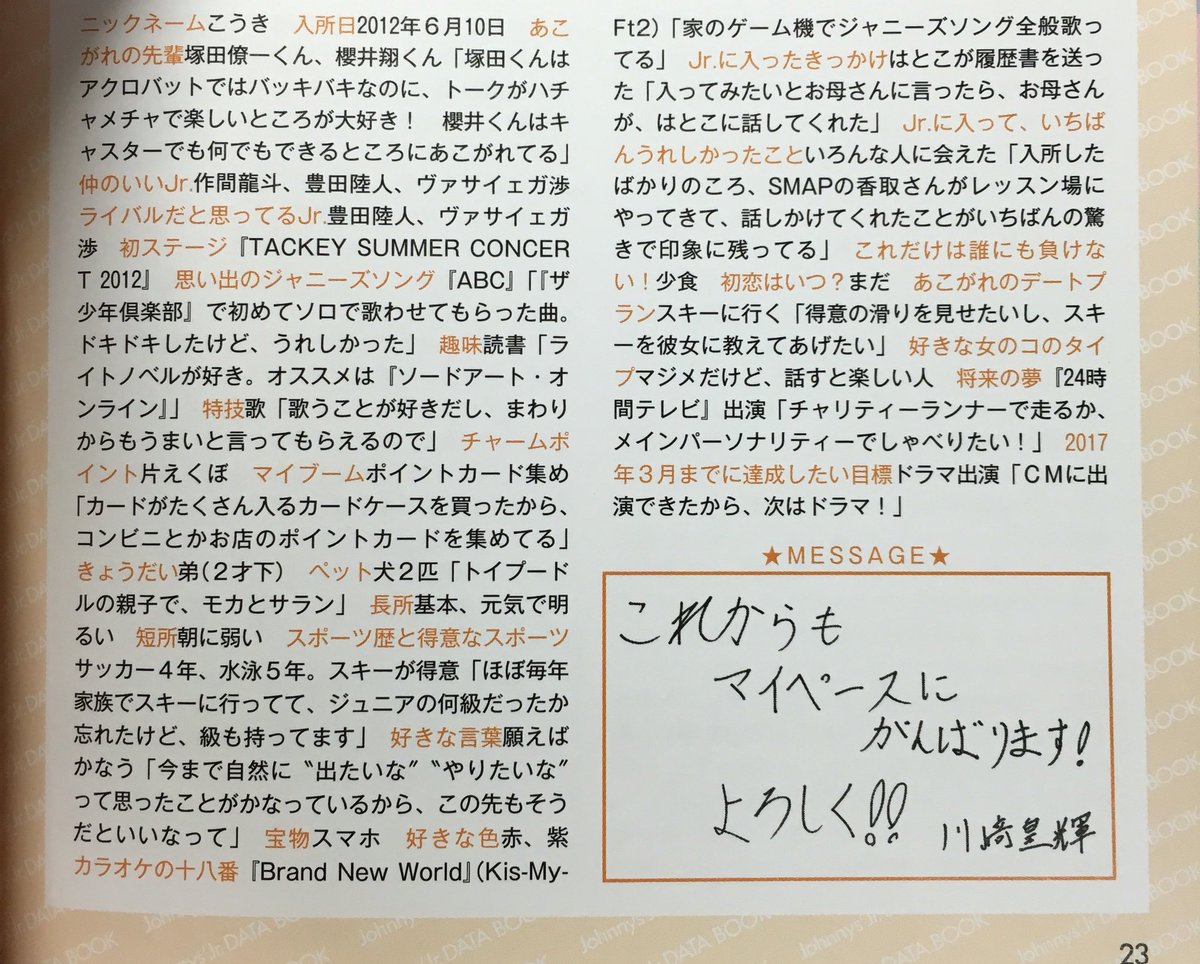 ニックネームこうき　入所日2012年6月10日　あこ
がれの先輩塚田僚一くん、櫻井翔くん「塚田くんは
アクロバットではバッキバキなのに、トークがハチ
ャメチャで楽しいところが大好き！　櫻井くんはキ
ャスターでも何でもできるところにあこがれてる」
仲のいいJr.作間龍斗、豊田陸人、ヴァサイェガ渉
ライバルだと思ってるJr.豊田陸人、ヴァサイェガ
渉　初ステージ『TACKEY SUMMER CONCER
T 2012』　思い出のジャニーズソング『ABC』「『ザ
少年倶楽部』で初めてソロで歌わせてもらった曲。
ドキドキしたけど、うれしかった」　趣味読書「ラ
イトノベルが好き。オススメは『ソードアート・オ
ンライン』」　特技歌「歌うことが好きだし、まわり
からもうまいと言ってもらえるので」　チャームポ
イント片えくぼ　マイブームポイントカード集め
「カードがたくさん入るカードケースを買ったから、
コンビニとかお店のポイントカードを集めてる」
きょうだい弟（2才下）　ペット犬2匹「トイプード
ルの親子で、モカとサラン」　長所基本、元気で明
るい　短所朝に弱い　スポーツ歴と得意なスポーツ
サッカー4年、水泳5年。スキーが得意「ほぼ毎年
家族でスキーに行ってて、ジュニアの何級だったか
忘れたけど、級も持ってます」　好きな言葉願えば
かなう「今まで自然に〝出たいな〞〝やりたいな〞
って思ったことがかなっているから、この先もそう
だといいなって」　宝物スマホ　好きな色赤、紫
カラオケの十八番『Brand New World』（Kis-My-
Ft2）「家のゲーム機でジャニーズソング全般歌っ
てる」　Jr.に入ったきっかけはとこが履歴書を送っ
た「入ってみたいとお母さんに言ったら、お母さん
が、はとこに話してくれた」　Jr.に入って、いちば
んうれしかったこといろんな人に会えた「入所した
ばかりのころ、SMAPの香取さんがレッスン場に
やってきて、話しかけてくれたことがいちばんの驚
きで印象に残ってる」　これだけは誰にも負けな
い！少食　初恋はいつ？まだ　あこがれのデートプ
ランスキーに行く「得意の滑りを見せたいし、スキ
ーを彼女に教えてあげたい」　好きな女のコのタイ
プマジメだけど、話すと楽しい人　将来の夢『24時
間テレビ』出演「チャリティーランナーで走るか、
メインパーソナリティーでしゃべりたい！」　2017
年3月までに達成したい目標ドラマ出演「CMに出
演できたから、次はドラマ！」
★MESSAGE★
これからも
マイペースに
がんばります！
よろしく！！
川﨑皇輝
Johnnys' Jr. DATA BOOK
23